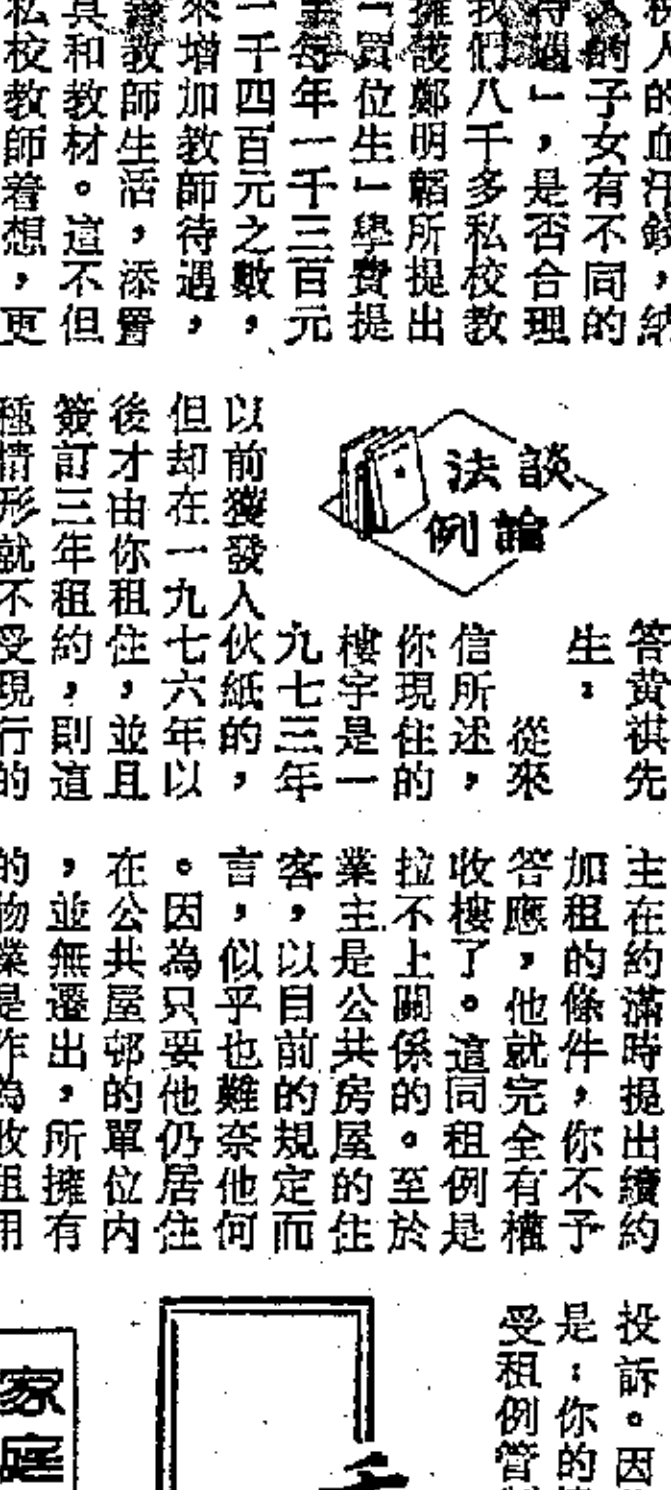 人的血汗錢，納
的子女有不同的
待遇」，是否合理
我們八千多私校教
擁護鄭明韜所提出
「買位生」學費提
每年一千三百元
一千四百元之數，
來增加教師待遇，
教師生活，添置
具和教材。這不但
私校教師着想，更
談論
法例
答黃祺先
生：
從來
信所述，
你現住的
樓宇是一
九七三年
以前獲發入伙紙的，
但却在一九七六年以
後才由你租住，並且
簽訂三年租約，則這
種情形就不受現行的
主在約滿時提出續約
加租的條件，你不予
答應，他就完全有權
收樓了。這同租例是
拉不上關係的。至於
業主是公共房屋的住
客，以目前的規定而
言，似乎也難奈他何
。因為只要他仍居住
在公共屋邨的單位內
，並無遷出，所擁有
的物業是作為收租用
投訴。因
是：你的
受租例管
家庭